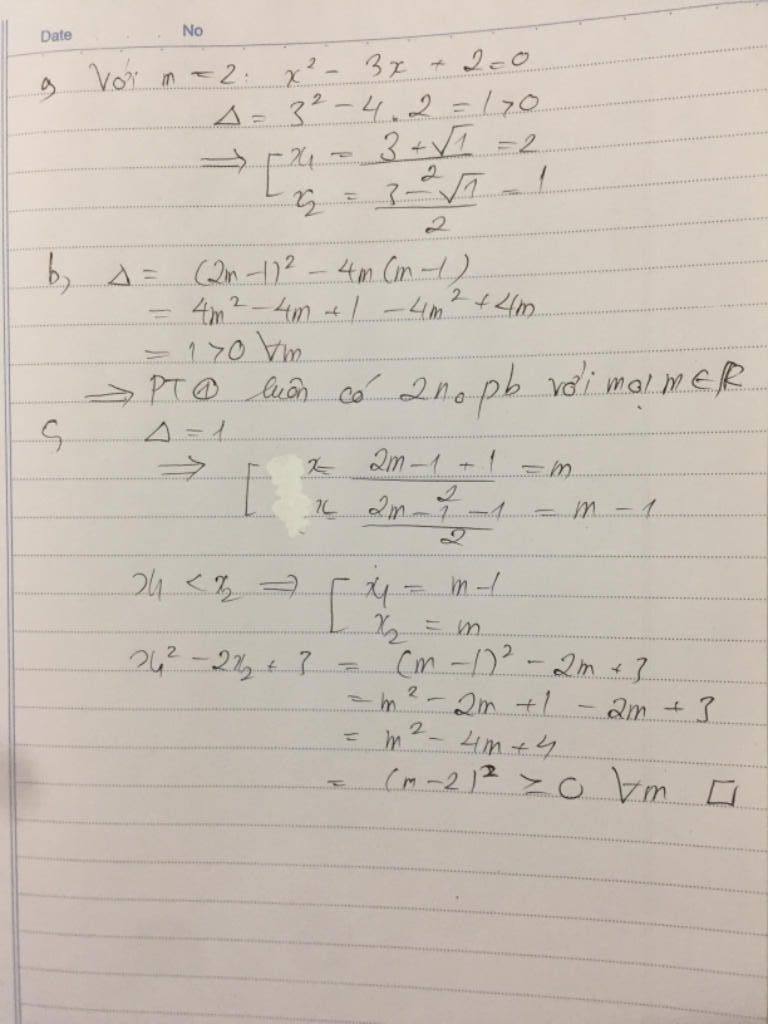 Date No
a, Với m = 2: x² - 3x + 2 = 0
Δ = 3² - 4.2 = 1 > 0
⇒ [ x₁ = (3 + √1)/2 = 2
x₂ = (3 - √1)/2 = 1
b, Δ = (2m - 1)² - 4m(m - 1)
= 4m² - 4m + 1 - 4m² + 4m
= 1 > 0 ∀m
⇒ PT① luôn có 2 n₀ pb với mọi m ∈ R
c, Δ = 1
⇒ [ x = (2m - 1 + 1)/2 = m
x = (2m - 1 - 1)/2 = m - 1
x₁ < x₂ ⇒ [ x₁ = m - 1
x₂ = m
x₁² - 2x₂ + 3 = (m - 1)² - 2m + 3
= m² - 2m + 1 - 2m + 3
= m² - 4m + 4
= (m - 2)² ≥ 0 ∀m □